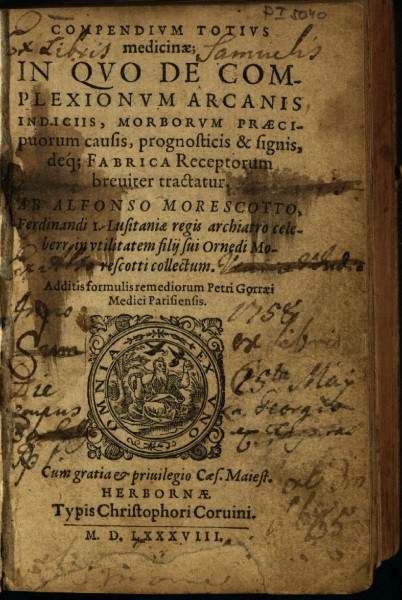 PI 5040
COMPENDIVM TOTIVS
medicinæ;
Ex Libris Samuelis
IN QVO DE COM-
PLEXIONVM ARCANIS
INDICIIS, MORBORVM PRÆCI-
puorum causis, prognosticis & signis,
deq; FABRICA Receptorum
breuiter tractatur.
AB ALFONSO MORESCOTTO,
Ferdinandi I. Lusitaniæ regis archiatro cele-
berr. in vtilitatem filij sui Ornędi Mo-
rescotti collectum.
Additis formulis remediorum Petri Gorræi
Medici Parisiensis.
1758
Sum ex libris
Die 15ta May
OMNIA EX VNO
Cum gratia & priuilegio Cæs. Maiest.
HERBORNÆ
Typis Christophori Coruini.
M. D. LXXXVIII.